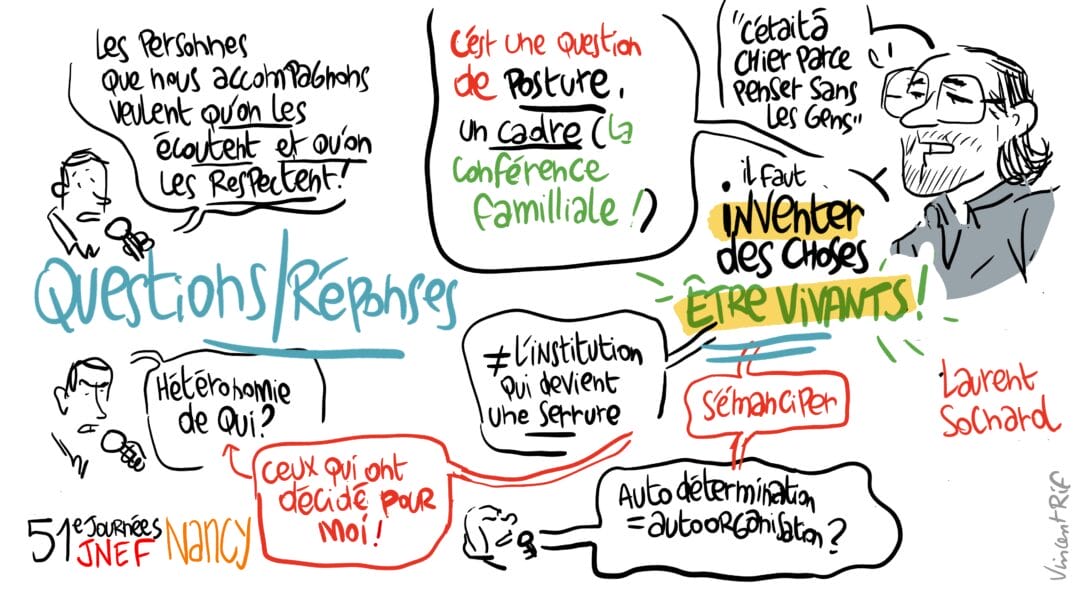 Les Personnes
que nous accompagnons
veulent qu'on les
écoutent et qu'on
les Respectent!
C'est une question
de Posture,
un cadre (la
Conférence
familliale !)
"C'était à
chier parce
penser sans
les gens"
il faut
inventer
des choses
ÊTRE VIVANTS !
Questions/Réponses
≠ L'institution
qui devient
une serrure
S'émanciper
Laurent
Sochard
Hétéronomie
de qui?
Ceux qui ont
décidé pour
moi!
Auto détermination
= auto organisation ?
51e Journées
JNEF Nancy
VincentRif